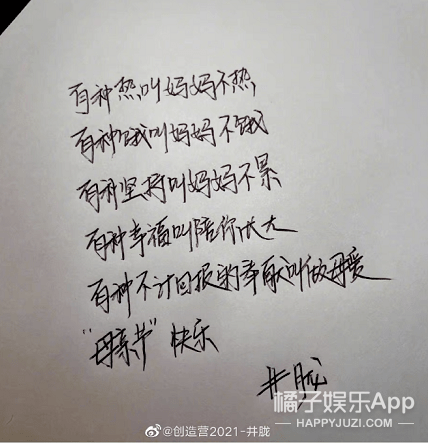 有种热叫妈妈不热
有种饿叫妈妈不饿
有种坚持叫妈妈不累
有种幸福叫陪你长大
有种不计回报的奉献叫做母爱
“母亲节”快乐
井胧
橘子娱乐App
HAPPYJUZI.COM
@创造营2021-井胧